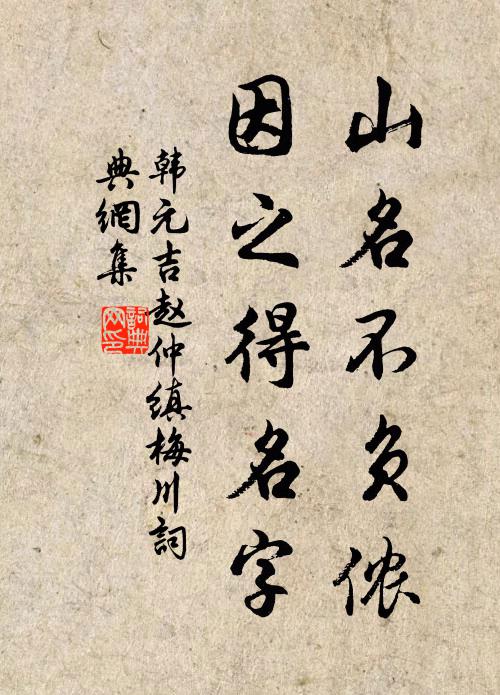 山名不负侬
因之得名字
韩元吉赵仲缜梅川詞
典網集
詞典
网印